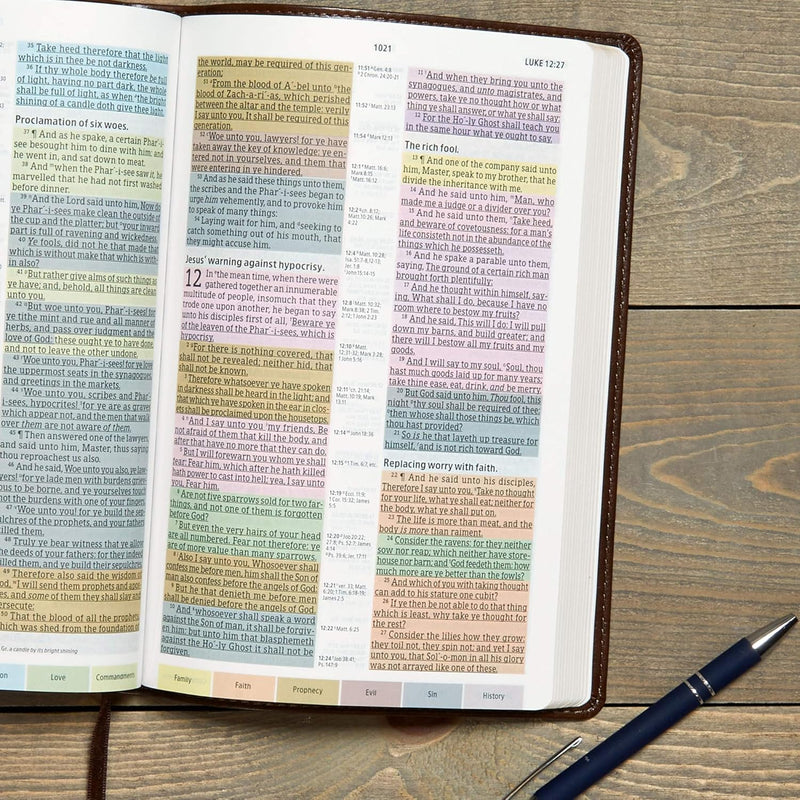 1021
LUKE 12:27
35 Take heed therefore that the light
which is in thee be not darkness.
36 If thy whole body therefore be full
of light, having no part dark, the whole
shall be full of light, as when the bright
shining of a candle doth give thee light.
Proclamation of six woes.
37 ¶ And as he spake, a certain Phar´-i-
see besought him to dine with him: and
he went in, and sat down to meat.
38 And when the Phar´-i-see saw it, he
marvelled that he had not first washed
before dinner.
39 And the Lord said unto him, Now do
ye Phar´-i-sees make clean the outside
of the cup and the platter; but your inward
part is full of ravening and wickedness.
40 Ye fools, did not he that made that
which is without make that which is with-
in also?
41 But rather give alms of such things as
ye have; and, behold, all things are clean
unto you.
42 But woe unto you, Phar´-i-sees! for
ye tithe mint and rue and all manner of
herbs, and pass over judgment and the
love of God: these ought ye to have done,
and not to leave the other undone.
43 Woe unto you, Phar´-i-sees! for ye love
the uppermost seats in the synagogues,
and greetings in the markets.
44 Woe unto you, scribes and Phar´-
i-sees, hypocrites! for ye are as graves
which appear not, and the men that walk
over them are not aware of them.
45 ¶ Then answered one of the lawyers,
and said unto him, Master, thus saying
thou reproachest us also.
46 And he said, Woe unto you also, ye law-
yers! for ye lade men with burdens griev-
ous to be borne, and ye yourselves touch
not the burdens with one of your fingers.
47 Woe unto you! for ye build the sep-
ulchres of the prophets, and your fathers
killed them.
48 Truly ye bear witness that ye allow
the deeds of your fathers: for they indeed
killed them, and ye build their sepulchres.
49 Therefore also said the wisdom of
God, I will send them prophets and apos-
tles, and some of them they shall slay and
persecute:
50 That the blood of all the prophets,
which was shed from the foundation of
Gr. a candle by its bright shining
the world, may be required of this gen-
eration;
51 From the blood of A´-bel unto the
blood of Zach-a-ri´-as, which perished
between the altar and the temple: verily
I say unto you, It shall be required of this
generation.
52 Woe unto you, lawyers! for ye have
taken away the key of knowledge: ye en-
tered not in yourselves, and them that
were entering in ye hindered.
53 And as he said these things unto them,
the scribes and the Phar´-i-sees began to
urge him vehemently, and to provoke him
to speak of many things:
54 Laying wait for him, and seeking to
catch something out of his mouth, that
they might accuse him.
Jesus' warning against hypocrisy.
12 In the mean time, when there were
gathered together an innumerable
multitude of people, insomuch that they
trode one upon another, he began to say
unto his disciples first of all, Beware ye
of the leaven of the Phar´-i-sees, which is
hypocrisy.
2 For there is nothing covered, that
shall not be revealed; neither hid, that
shall not be known.
3 Therefore whatsoever ye have spoken
in darkness shall be heard in the light; and
that which ye have spoken in the ear in clos-
ets shall be proclaimed upon the housetops.
4 And I say unto you my friends, Be
not afraid of them that kill the body, and
after that have no more that they can do.
5 But I will forewarn you whom ye shall
fear: Fear him, which after he hath killed
hath power to cast into hell; yea, I say unto
you, Fear him.
6 Are not five sparrows sold for two far-
things, and not one of them is forgotten
before God?
7 But even the very hairs of your head
are all numbered. Fear not therefore: ye
are of more value than many sparrows.
8 Also I say unto you, Whosoever shall
confess me before men, him shall the Son of
man also confess before the angels of God:
9 But he that denieth me before men
shall be denied before the angels of God.
10 And whosoever shall speak a word
against the Son of man, it shall be forgiv-
en him: but unto him that blasphemeth
against the Ho´-ly Ghost it shall not be
forgiven.
11:51 Gen. 4:8
2 Chron. 24:20-21
11:52 Matt. 23:13
11:54 Mark 12:13
12:1 Matt. 16:6;
Mark 8:15
Matt. 16:12
12:4
12:10 Matt.
12:31-32; Mark 3:28;
1 John 5:16
12:11 ch. 21:14;
Matt. 10:19; Mark
13:11
12:14 John 18:36
12:15 1 Tim. 6:7, etc.
12:22 Matt. 6:25
12:24 Job 38:41;
Ps. 147:9
11 And when they bring you unto the
synagogues, and unto magistrates, and
powers, take ye no thought how or what
thing ye shall answer, or what ye shall say:
12 For the Ho´-ly Ghost shall teach you
in the same hour what ye ought to say.
The rich fool.
13 ¶ And one of the company said unto
him, Master, speak to my brother, that he
divide the inheritance with me.
14 And he said unto him, Man, who
made me a judge or a divider over you?
15 And he said unto them, Take heed,
and beware of covetousness: for a man's
life consisteth not in the abundance of the
things which he possesseth.
16 And he spake a parable unto them,
saying, The ground of a certain rich man
brought forth plentifully:
17 And he thought within himself, say-
ing, What shall I do, because I have no
room where to bestow my fruits?
18 And he said, This will I do: I will pull
down my barns, and build greater; and
there will I bestow all my fruits and my
goods.
19 And I will say to my soul, Soul, thou
hast much goods laid up for many years;
take thine ease, eat, drink, and be merry.
20 But God said unto him, Thou fool, this
night thy soul shall be required of thee:
then whose shall those things be, which
thou hast provided?
21 So is he that layeth up treasure for
himself, and is not rich toward God.
Replacing worry with faith.
22 ¶ And he said unto his disciples,
Therefore I say unto you, Take no thought
for your life, what ye shall eat; neither for
the body, what ye shall put on.
23 The life is more than meat, and the
body is more than raiment.
24 Consider the ravens: for they neither
sow nor reap; which neither have store-
house nor barn; and God feedeth them: how
much more are ye better than the fowls?
25 And which of you with taking thought
can add to his stature one cubit?
26 If ye then be not able to do that thing
which is least, why take ye thought for
the rest?
27 Consider the lilies how they grow:
they toil not, they spin not; and yet I say
unto you, that Sol´-o-mon in all his glory
was not arrayed like one of these.
Love
Commandments
Family
Faith
Prophecy
Evil
Sin
History